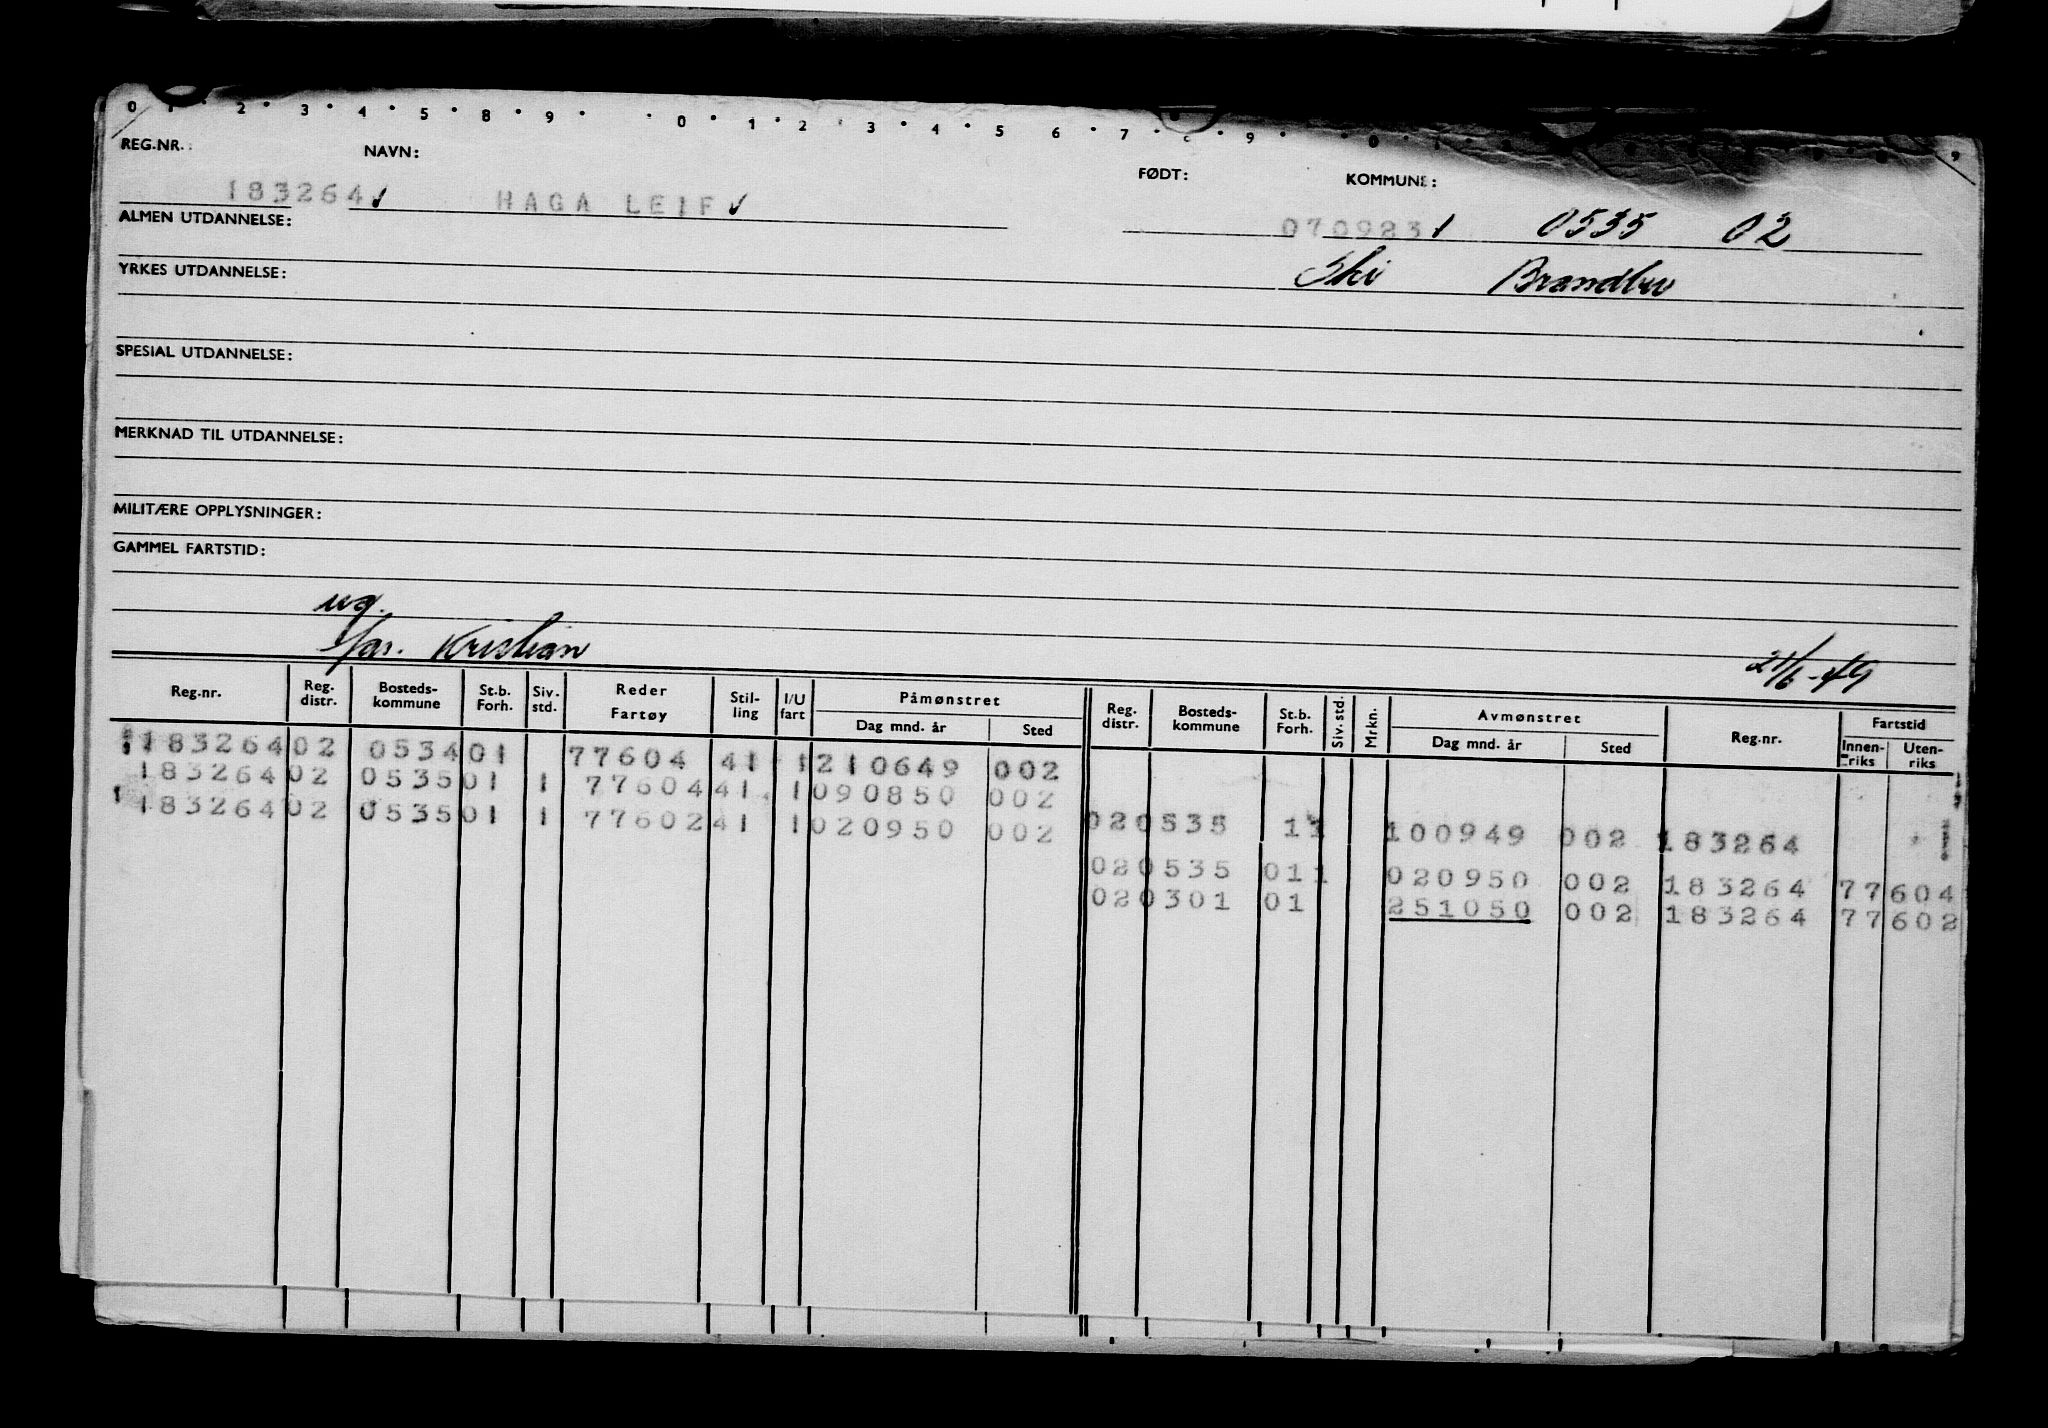 0 1 2 3 4 5 8 9 0 1 2 3 4 5 6 7 9 0 1 9
REG.NR. NAVN: FØDT: KOMMUNE:
183264 HAGA LEIF 070923 0535 02
ALMEN UTDANNELSE:
Ski
YRKES UTDANNELSE:
SPESIAL UTDANNELSE:
MERKNAD TIL UTDANNELSE:
MILITÆRE OPPLYSNINGER:
GAMMEL FARTSTID:
ug.
far. Kristian 21/6-49
Reg.nr. Reg. distr. Bosteds-kommune St.b. Forh. Siv. std. Reder Fartøy Stil-ling I/U fart Påmønstret Dag mnd. år Sted Reg. distr. Bosteds-kommune St.b. Forh. Siv. std. Mrkn. Avmønstret Dag mnd. år Sted Reg.nr. Fartstid Innen-riks Uten-riks
183264 02 0534 01 77604 41 1 210649 002
183264 02 0535 01 1 77604 41 1 090850 002
183264 02 0535 01 1 77602 41 1 020950 002
02 0535 11 100949 002 183264
02 0535 01 1 020950 002 183264 77604
02 0301 01 251050 002 183264 77602